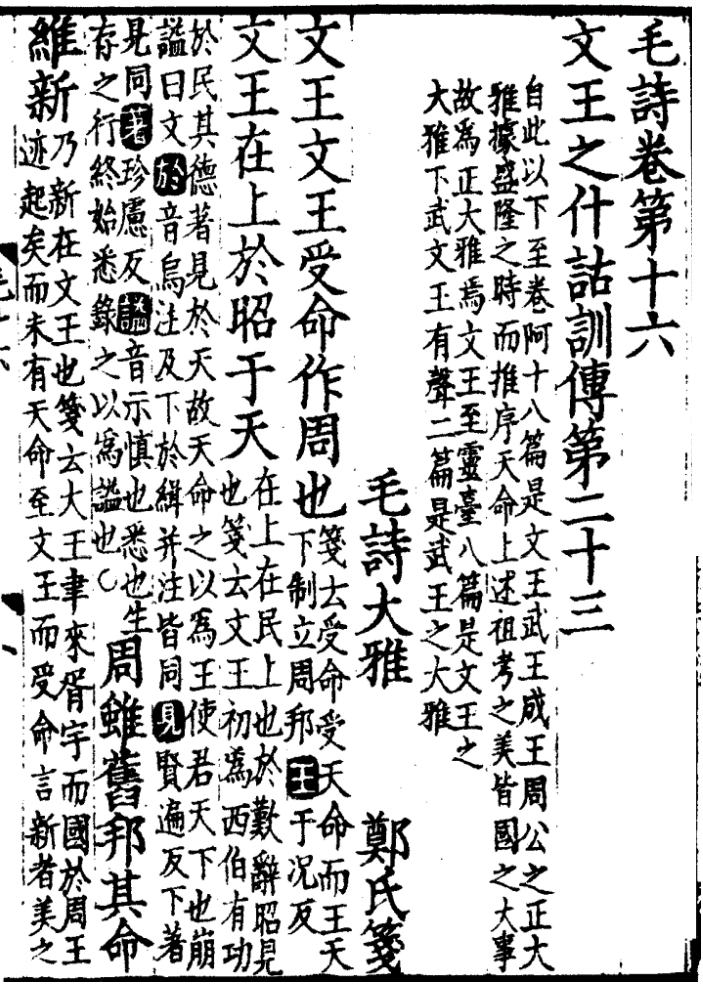 毛詩卷第十六
文王之什詁訓傳第二十三
自此以下至卷阿十八篇是文王武王成王周公之正大
雅據盛隆之時而推序天命上述祖考之美皆國之大事
故爲正大雅焉文王至靈臺八篇是文王之
大雅下武文王有聲二篇是武王之大雅
毛詩大雅 鄭氏箋
文王文王受命作周也
箋云受命受天命而王天
下制立周邦王于况反
文王在上於昭于天
在上在民上也於歎辭昭見
也箋云文王初爲西伯有功
於民其德著見於天故天命之以爲王使君天下也崩
謚曰文於音烏注及下於緝并注皆同見賢遍反下著
見同著珍慮反謚音示慎也悉也生
存之行終始悉錄之以爲謚也
周雖舊邦其命
維新
乃新在文王也箋云大王聿來胥宇而國於周王
迹起矣而未有天命至文王而受命言新者美之